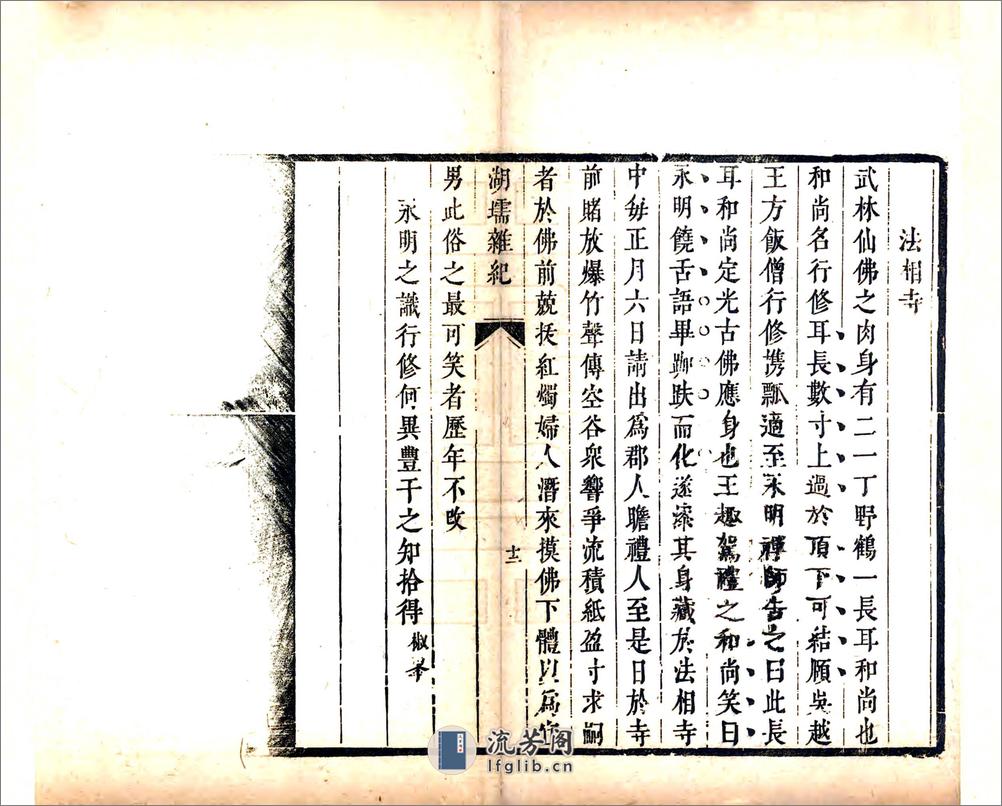 法相寺
武林仙佛之肉身有二一丁野鶴一長耳和尚也
和尚名行修耳長數寸上過於頂下可結頤吳越
王方飯僧行修携瓢適至永明禪師告之曰此長
耳和尚定光古佛應身也王趣駕禮之和尚笑曰
永明饒舌語畢跏趺而化遂漆其身藏於法相寺
中每正月六日請出爲郡人瞻禮人至是日於寺
前賭放爆竹聲傳空谷衆響爭流積紙盈寸求嗣
者於佛前兢挾紅燭婦人潛來摸佛下體以爲宜
湖壖雜紀
十三
男此俗之最可笑者歷年不改
永明之識行修何異豐干之知拾得
椒峯
流芳阁
lfglib.cn